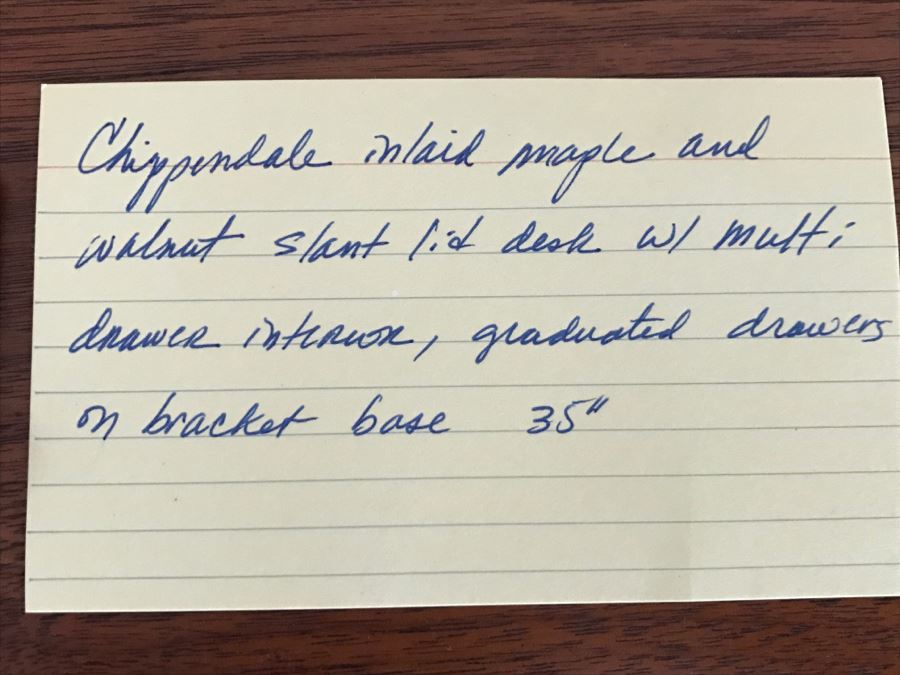 Chippendale inlaid maple and
walnut slant lid desk w/ multi
drawer interior, graduated drawers
on bracket base 35"